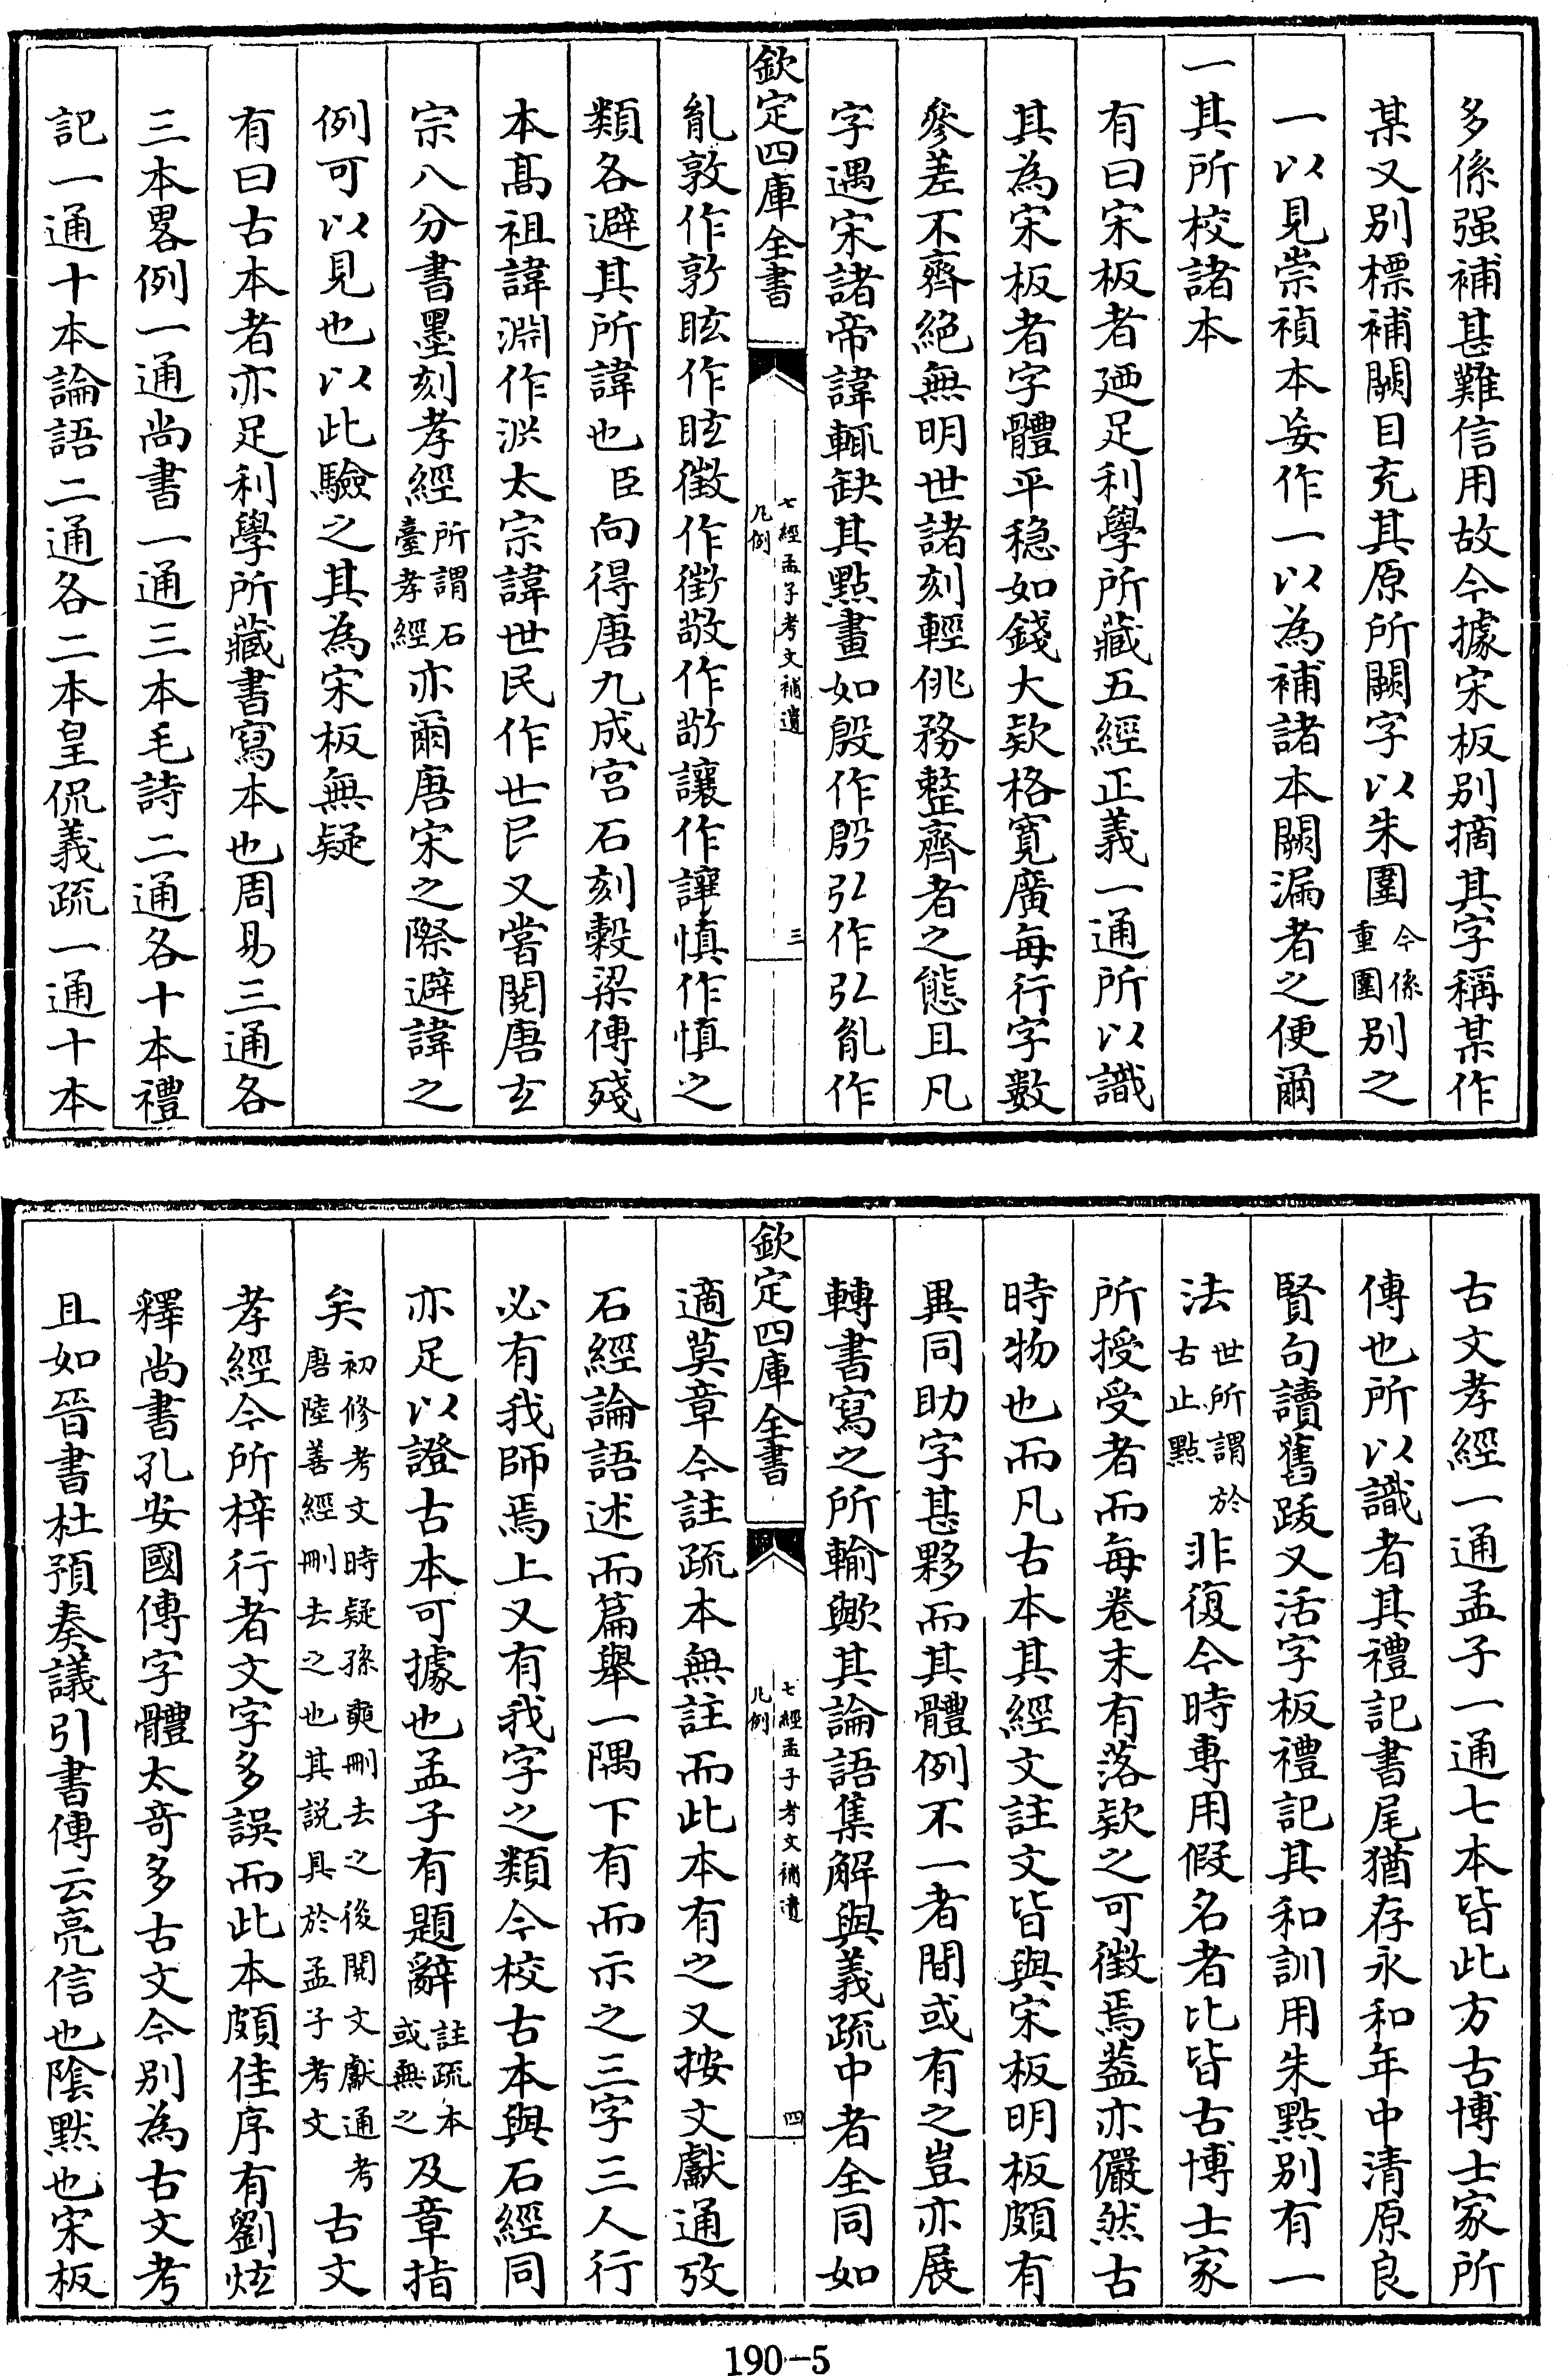 多係强補甚難信用故今據宋板别摘其字稱某作
某又别標補闕目充其原所闕字以朱圍今係重圍别之
一以見崇禎本妄作一以為補諸本闕漏者之便爾
一其所校諸本
有曰宋板者廼足利學所藏五經正義一通所以識
其為宋板者字體平穏如錢大欵格寛廣每行字數
參差不齊絶無明世諸刻輕佻務整齊者之態且凡
字遇宋諸帝諱輒缺其點畫如殷作殷弘作弘胤作
欽定四庫全書
七經孟子考文補遺
凡例
三
胤敦作敦眩作眩徵作徵敬作敬讓作讓慎作慎之
類各避其所諱也臣向得唐九成宫石刻糓梁傳殘
本髙祖諱淵作渆太宗諱世民作世民又嘗閱唐玄
宗八分書墨刻孝經所謂石臺孝經亦爾唐宋之際避諱之
例可以見也以此驗之其為宋板無疑
有曰古本者亦足利學所藏書寫本也周易三通各
三本畧例一通尚書一通三本毛詩二通各十本禮
記一通十本論語二通各二本皇侃義疏一通十本
古文孝經一通孟子一通七本皆此方古博士家所
傳也所以識者其禮記書尾猶存永和年中清原良
賢句讀舊跋又活字板禮記其和訓用朱點别有一
法世所謂於古止點非復今時専用假名者比皆古博士家
所授受者而每卷末有落欵之可徵焉葢亦儼然古
時物也而凡古本其經文註文皆與宋板明板頗有
異同助字甚夥而其體例不一者間或有之豈亦展
轉書寫之所輸歟其論語集解與義疏中者全同如
欽定四庫全書
七經孟子考文補遺
凡例
四
適莫章今註疏本無註而此本有之又按文獻通攷
石經論語述而篇舉一隅下有而示之三字三人行
必有我師焉上又有我字之類今校古本與石經同
亦足以證古本可據也孟子有題辭註疏本或無之及章指
矣初修考文時疑孫奭刪去之後閱文獻通考唐陸善經刪去之也其説具於孟子考文古文
孝經今所梓行者文字多誤而此本頗佳序有劉炫
釋尚書孔安國傳字體太奇多古文今别為古文考
且如晉書杜預奏議引書傳云亮信也陰黙也宋板
190-5